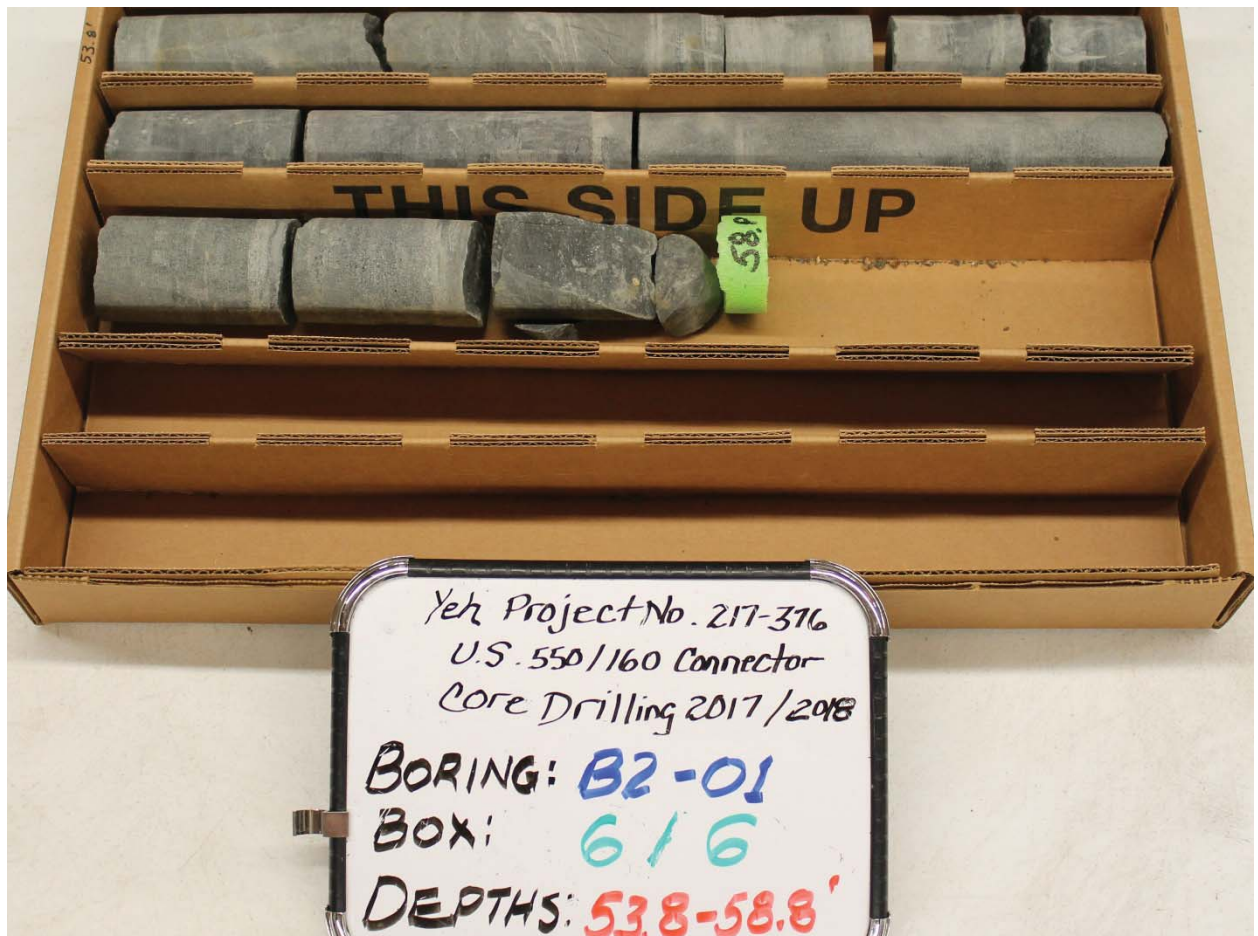 53.8'
THIS SIDE UP
58.8
Yeh Project No. 217-376
U.S. 550/160 Connector
Core Drilling 2017/2018
BORING: B2-01
BOX: 6/6
DEPTHS: 53.8-58.8'